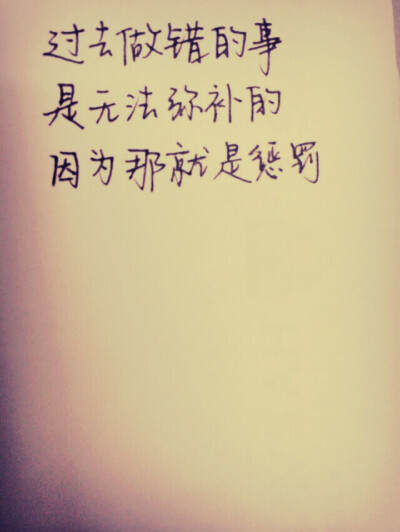 过去做错的事
是无法弥补的
因为那就是惩罚